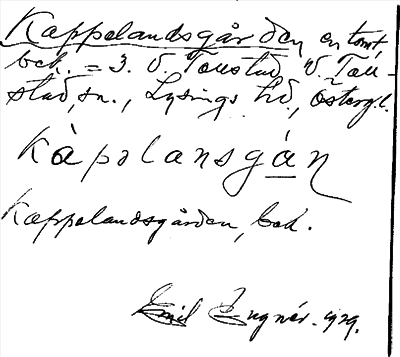 Kappelandsgården en tomt,
beb. = 3. V. Tollstad, V. Toll-
stad, sn., Lysings hd., Östergl.
Kàpolansgán
Kappelandsgården, beb.
Emil Engnér. 1929.